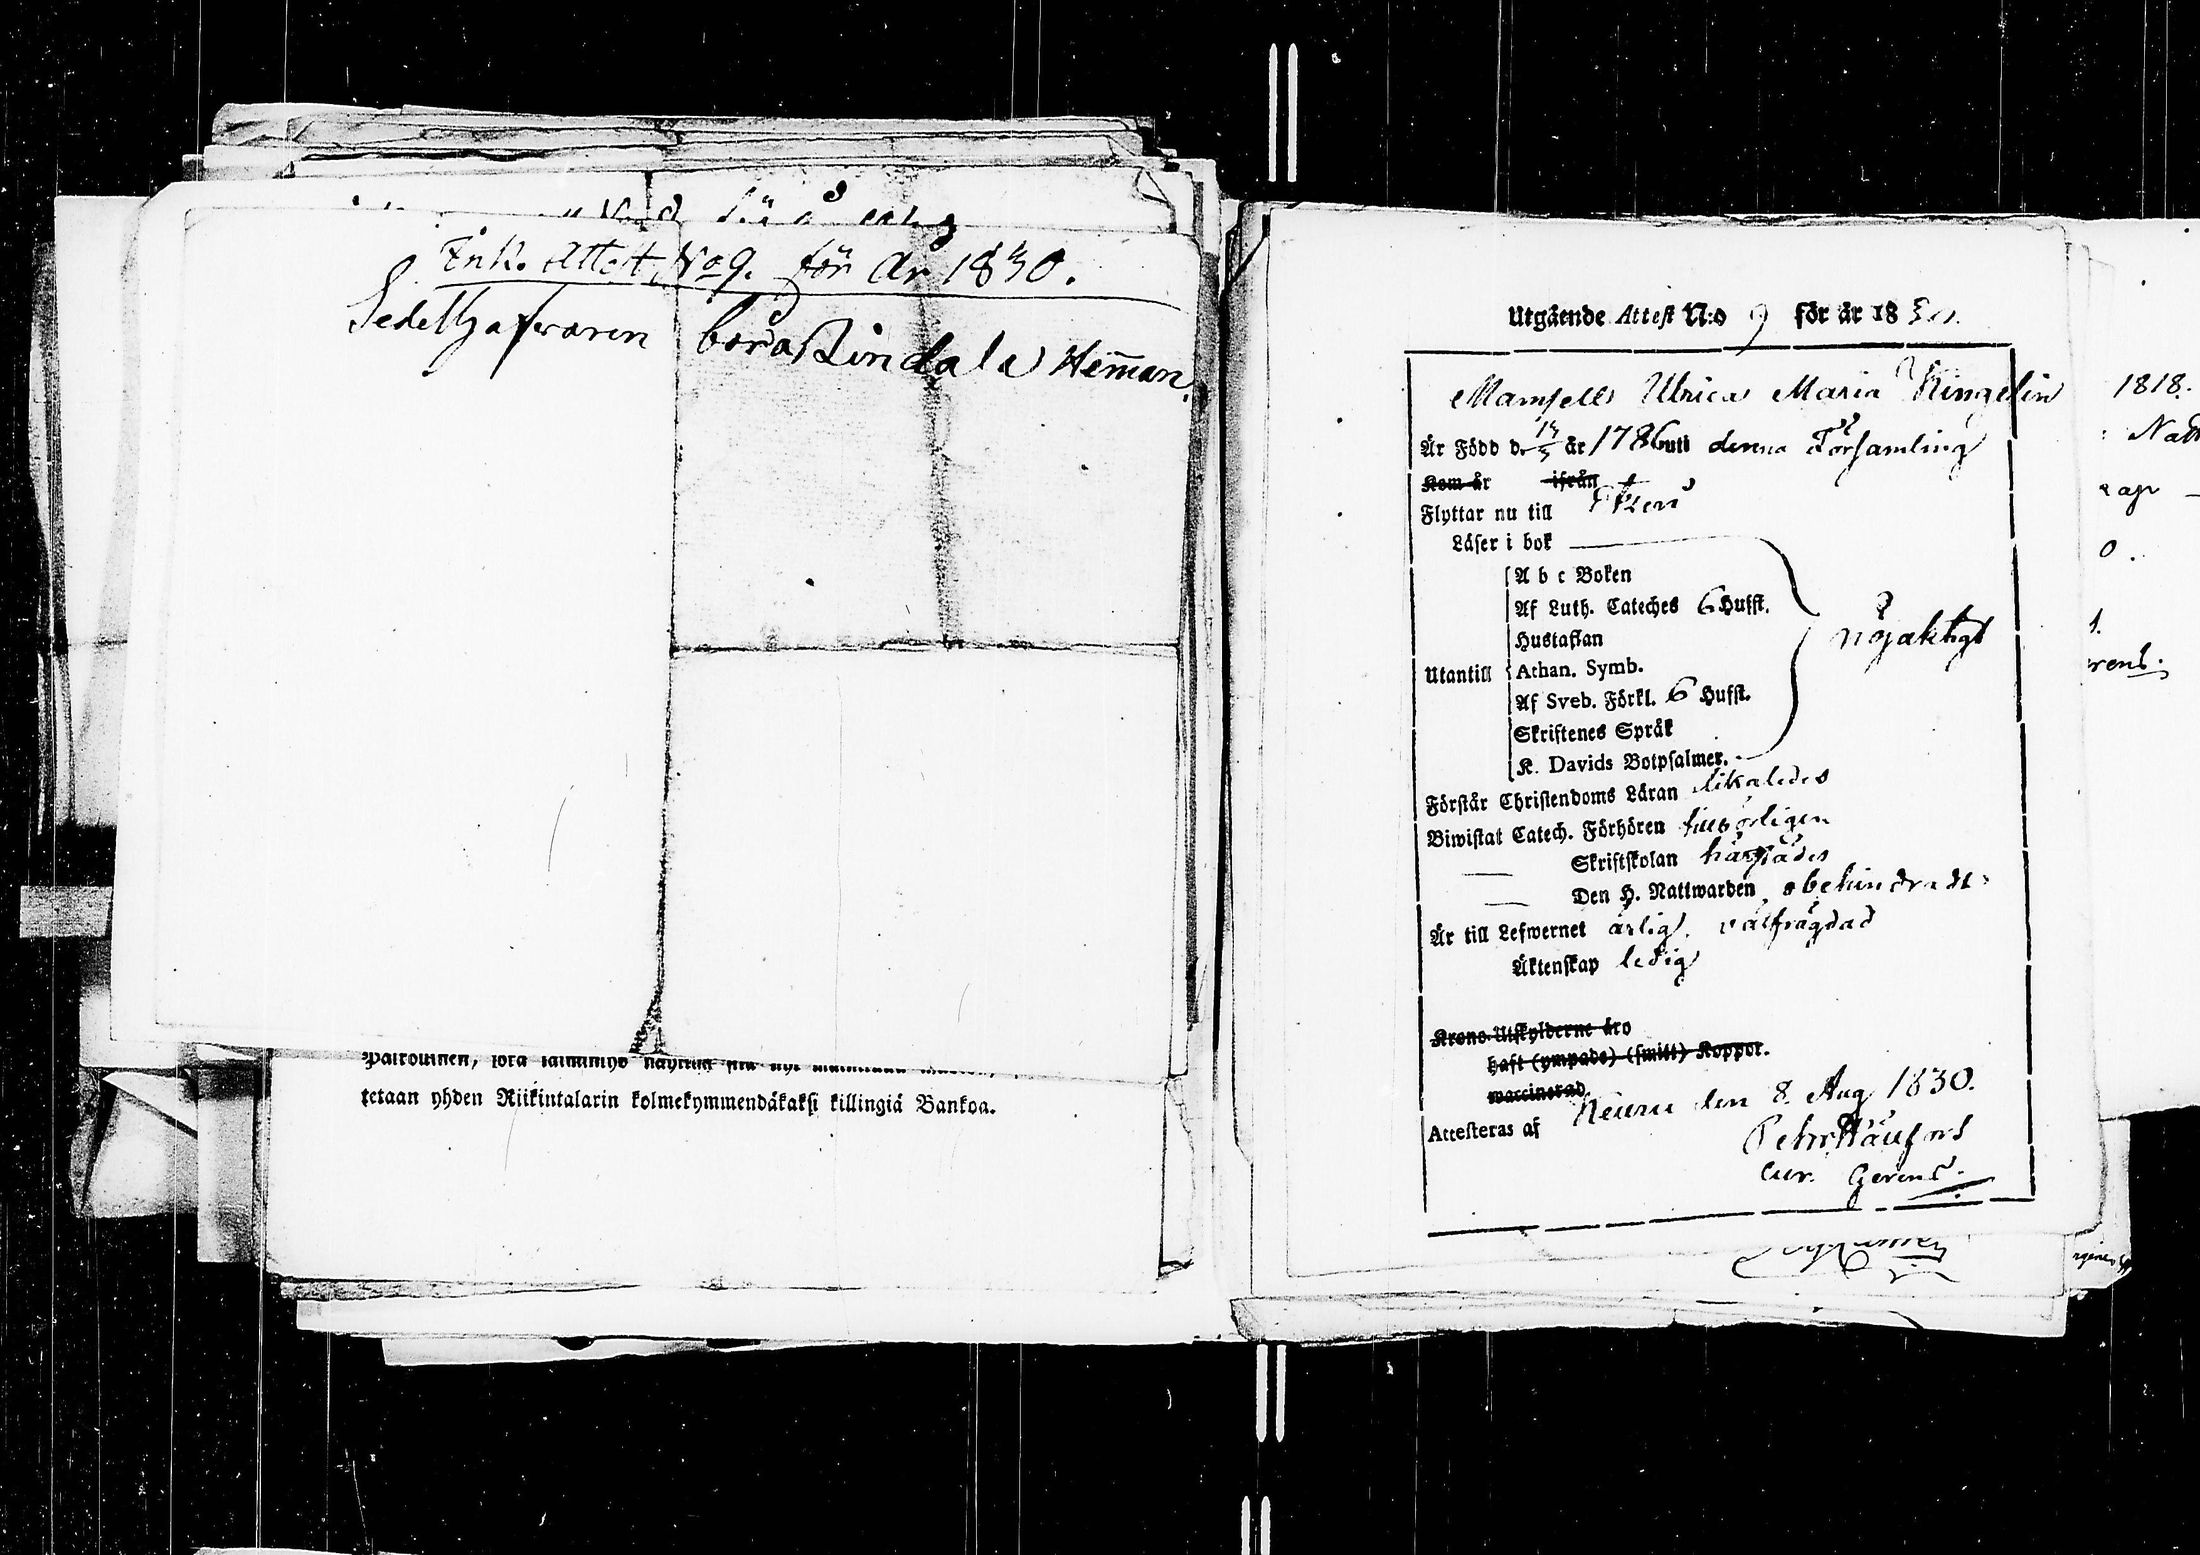 Ink. Attest, No 9. för År 1830.
Sedelhafvaren
på Rindala Hem̄an
tetaan yhden Riikintalarin kolmekymmendäkaksi killingiä Bankoa.
Utgående Attest N:o 9 för år 1830.
Mamsell Ulrica Maria Ringelin
Är Född d. 13/3 år 1786 uti denna Församling
Kom år ifrån
Flyttar nu till
Läser i bok
A b c Boken
Af Luth. Cateches 6 Hufst.
Hustaflan
nöjaktigt
Utantill Athan. Symb.
Af Sveb. Förkl. 6 Hufst.
Skriftenes Språk
K. Davids Botpsalmer.
Förstår Christendoms Läran likaledes
Biwistat Catech. Förhören tillbörligen
Skriftskolan härstädes
Den H. Nattwarden obehindradt
Är till Lefwernet ärlig, välfrägdad
Äktenskap ledig
Krono-Utskylderne äro
haft (ympade) (smitt) Koppor.
waccinerad
Keuru den 8. Aug 1830.
Attesteras af
Petr.
Cur. Gerens.
1818.
0.